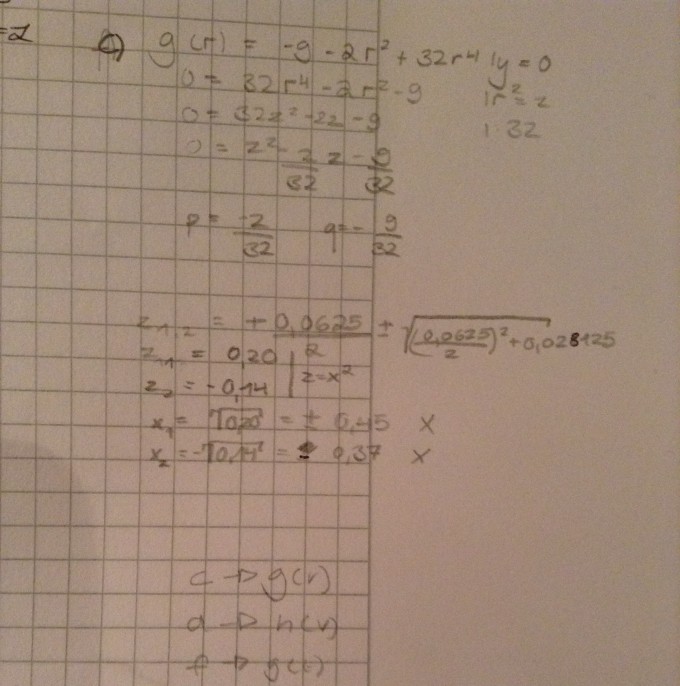 =2
c) g(r) = -9 - 2r² + 32r⁴ | y = 0
0 = 32r⁴ - 2r² - 9 | r² = z
0 = 32z² - 2z - 9 | : 32
0 = z² - 2/32 z - 9/32
p = -2/32 q = - 9/32
z1,2 = + 0,0625/2 ± √((0,0625/2)² + 0,028125
z1 = 0,20
z2 = -0,14 | z = x²
x1 = √0,20 = ± 0,45 x
x2 = -√0,14 = ± 0,37 x
c → g(r)
d → h(v)
f → g(t)